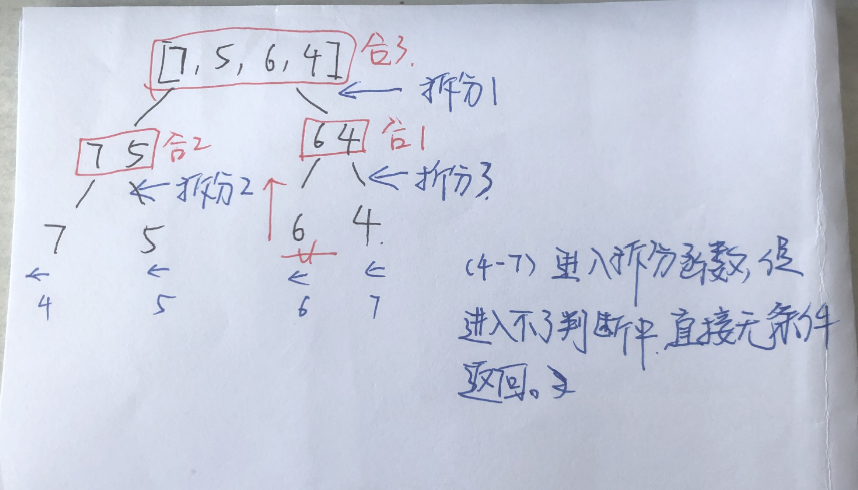 [7, 5, 6, 4] 合3.
← 拆分1
7 5 合2
6 4 合1
← 拆分2
← 拆分3.
7 5 6 4.
← ← ← ←
4 5 6 7
(4-7) 进入拆分函数, 但
进入不了判断中. 直接无条件
返回。